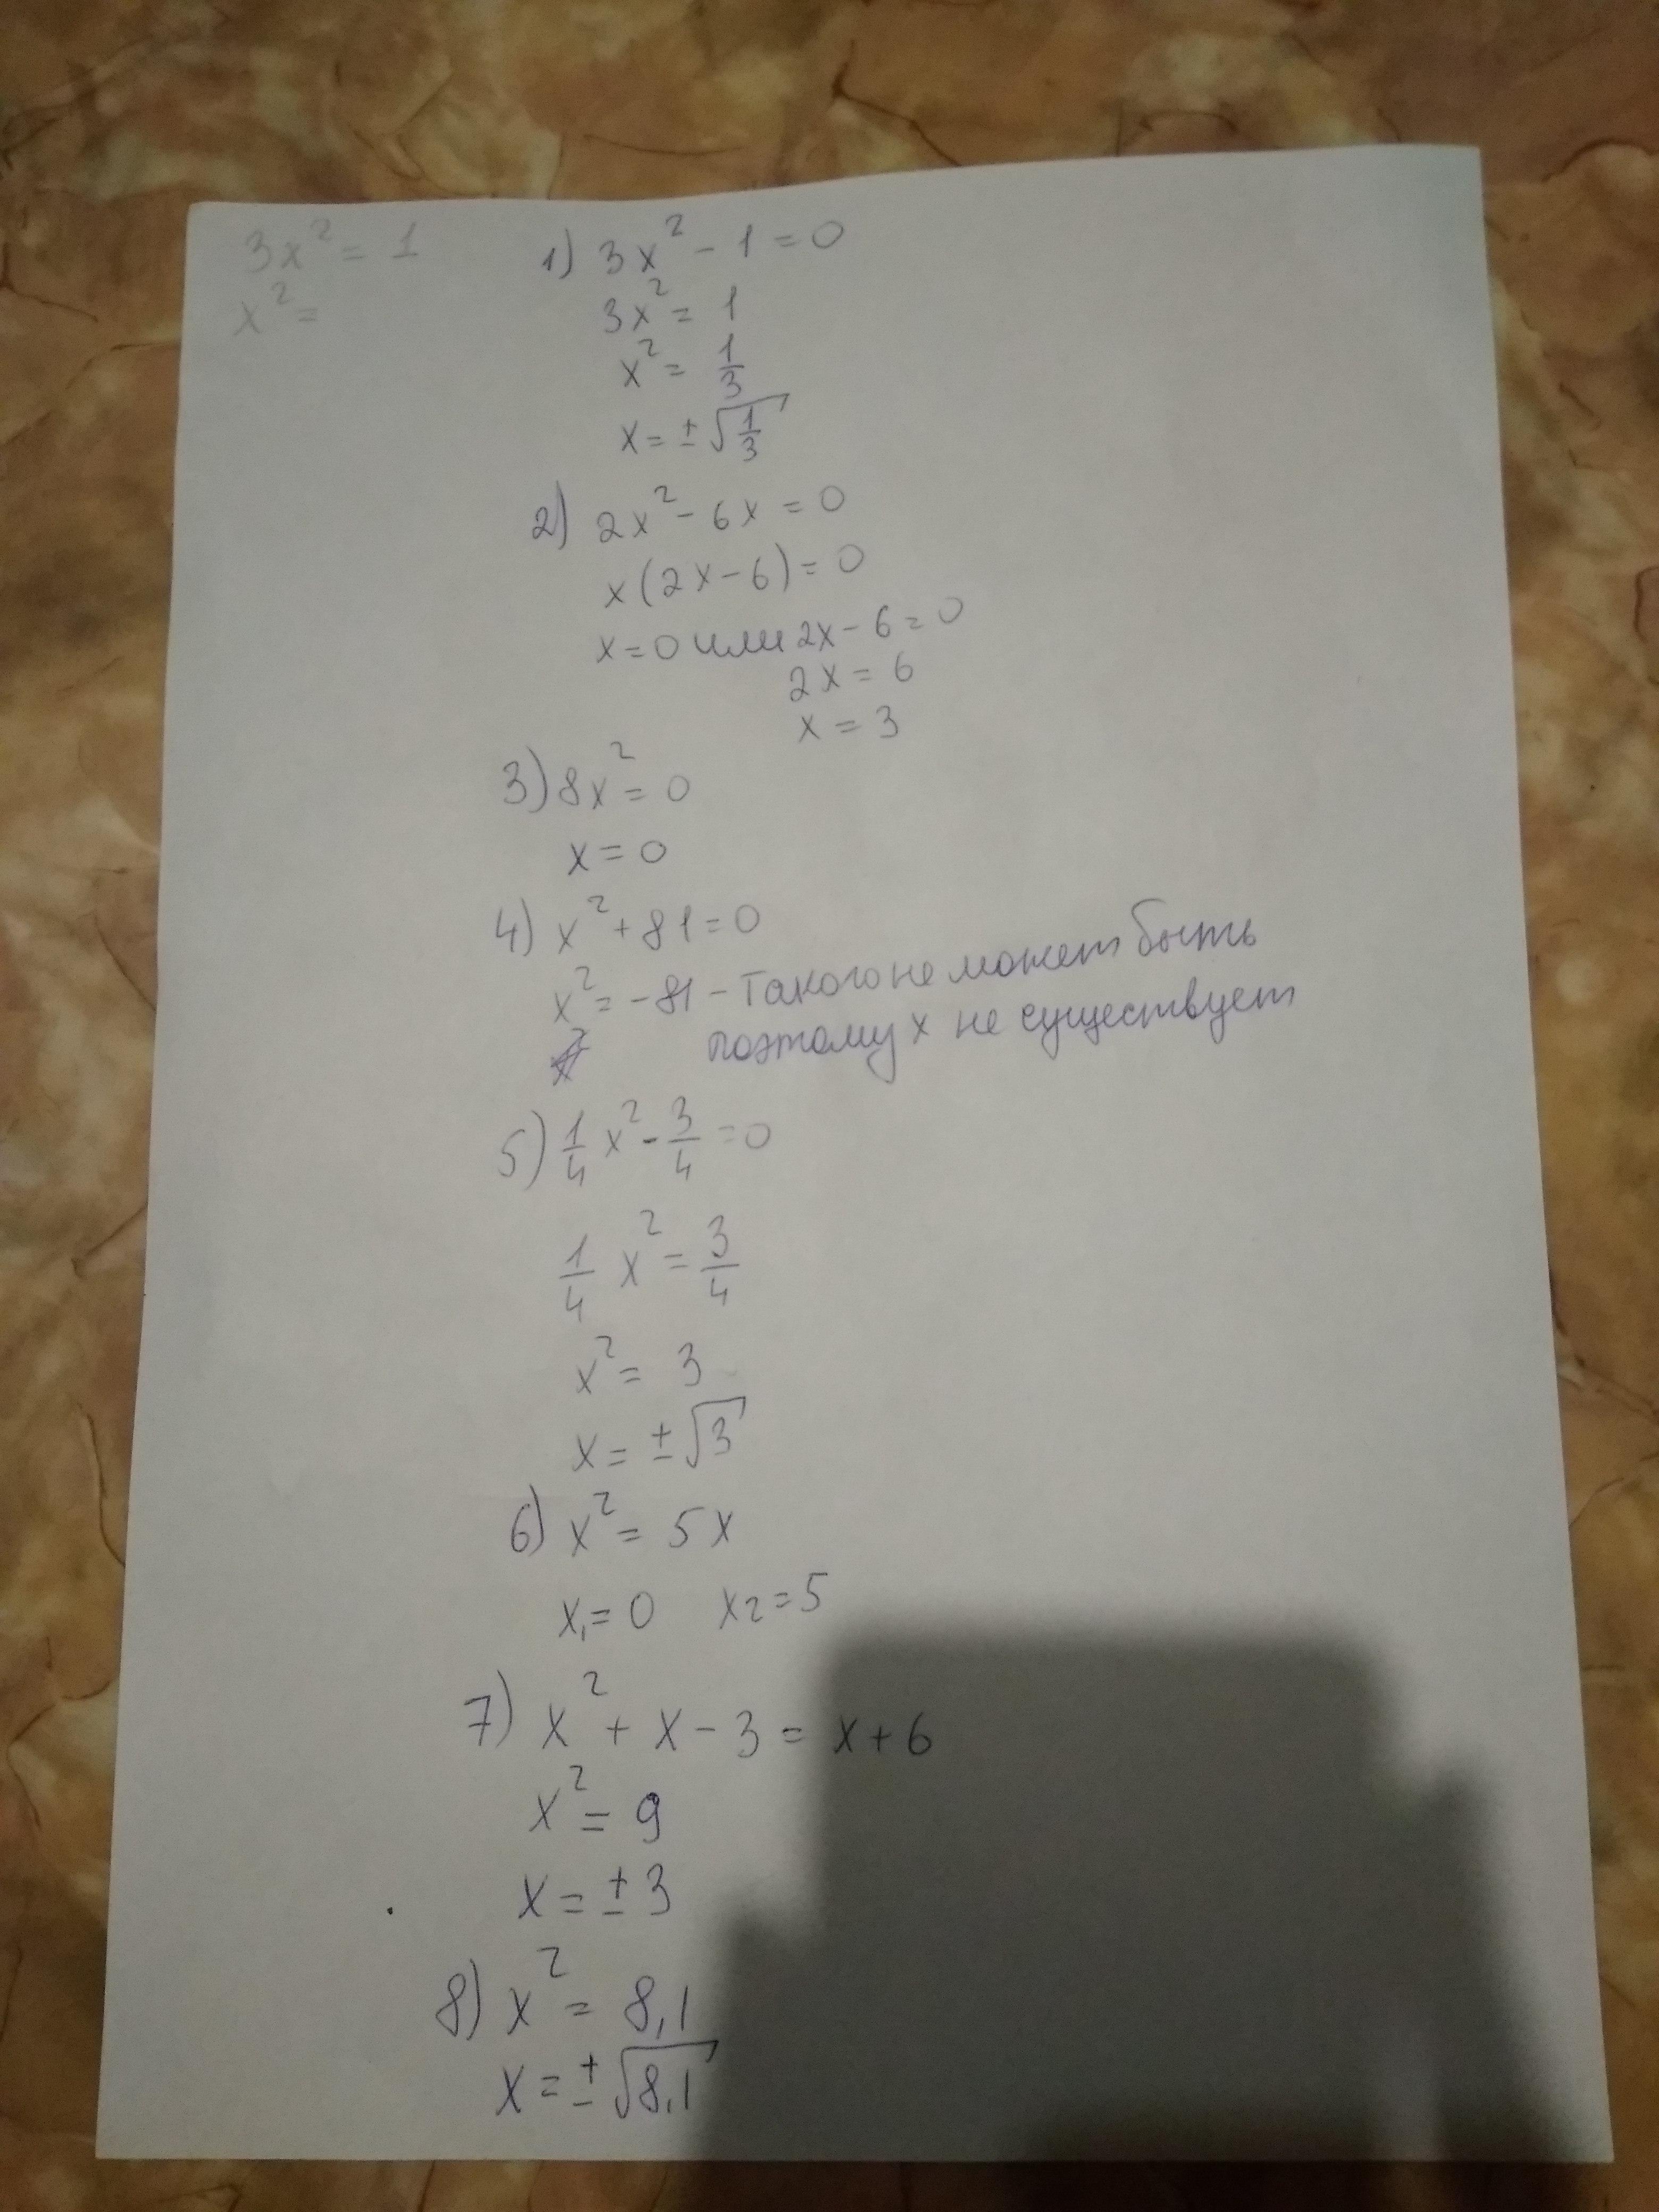 3x² = 1
x² =
1) 3x² - 1 = 0
3x² = 1
x² = 1/3
x = ±√(1/3)
2) 2x² - 6x = 0
x(2x - 6) = 0
x = 0 или 2x - 6 = 0
2x = 6
x = 3
3) 8x² = 0
x = 0
4) x² + 81 = 0
x² = -81 - Такого не может быть
поэтому x не существует
5) 1/4 x² - 3/4 = 0
1/4 x² = 3/4
x² = 3
x = ±√3
6) x² = 5x
x₁ = 0 x₂ = 5
7) x² + x - 3 = x + 6
x² = 9
x = ±3
8) x² = 8,1
x = ±√8,1